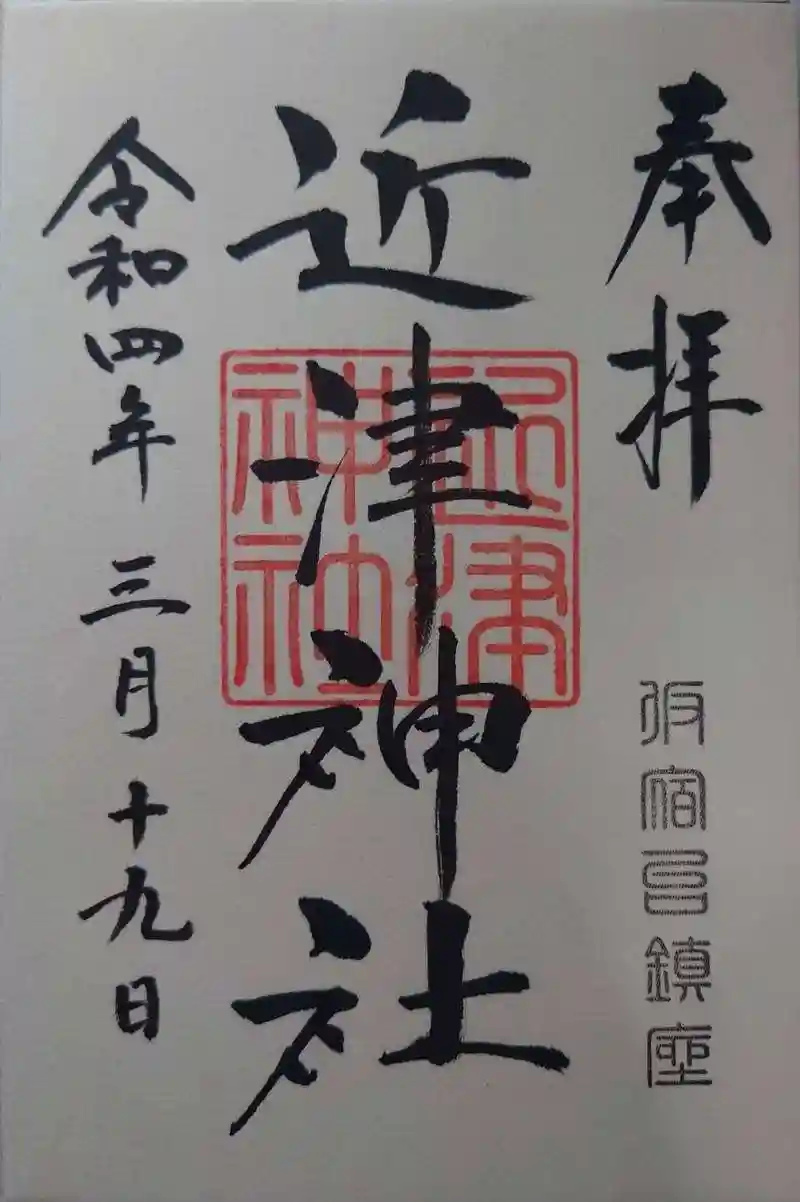 奉拝
仮宿邑鎮座
近津神社
近津
神社
令和四年三月十九日